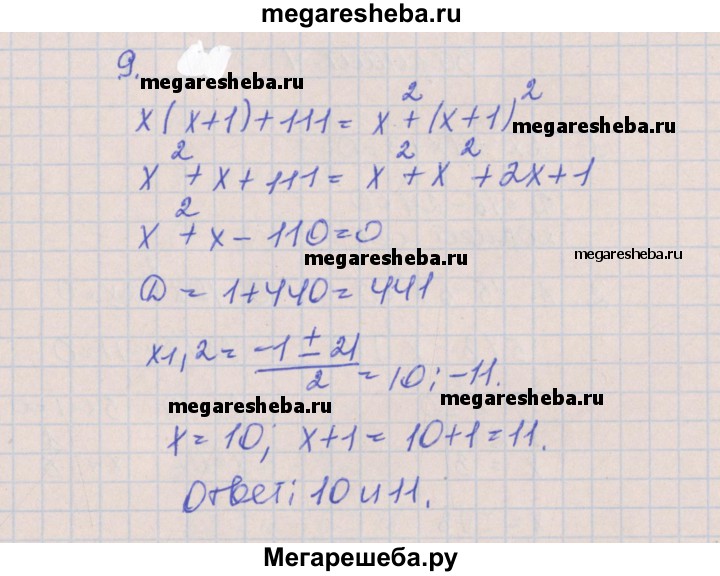 megaresheba.ru
9.
megaresheba.ru
x(x+1)+111= x²+(x+1)²
megaresheba.ru
x²+x+111= x²+x²+2x+1
x²+x-110=0
megaresheba.ru
megaresheba.ru
D = 1+440=441
x1,2= (-1±21)/2 =10;-11.
megaresheba.ru
megaresheba.ru
x=10; x+1=10+1=11.
Ответ: 10 и 11.
Мегарешеба.ру